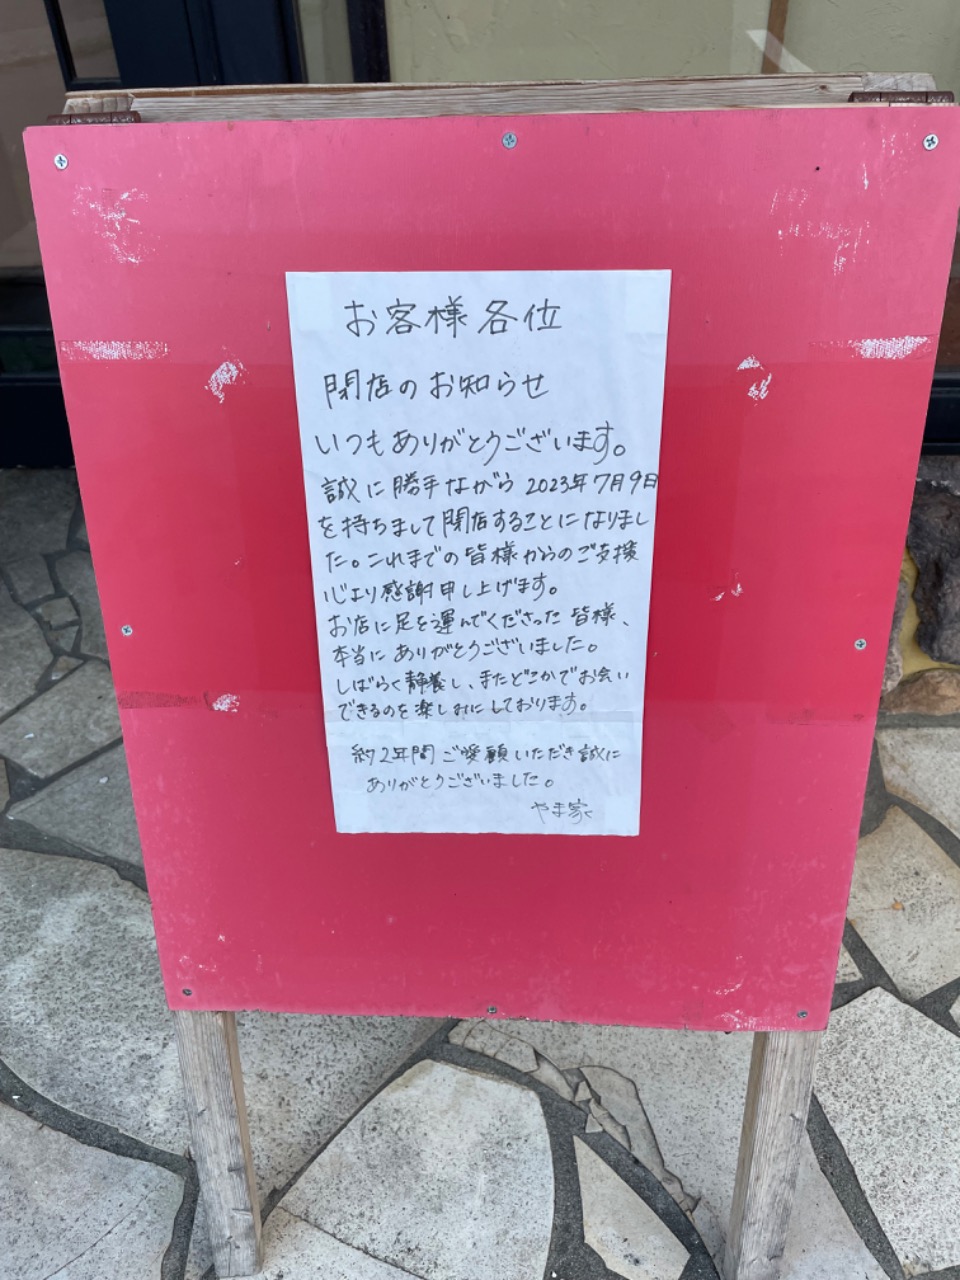 お客様各位
閉店のお知らせ
いつもありがとうございます。
誠に勝手ながら2023年7月9日
を持ちまして閉店することになりまし
た。これまでの皆様からのご支援
心より感謝申し上げます。
お店に足を運んでくださった皆様、
本当にありがとうございました。
しばらく静養し、またどこかでお会い
できるのを楽しみにしております。
約2年間ご愛顧いただき誠に
ありがとうございました。
やま家